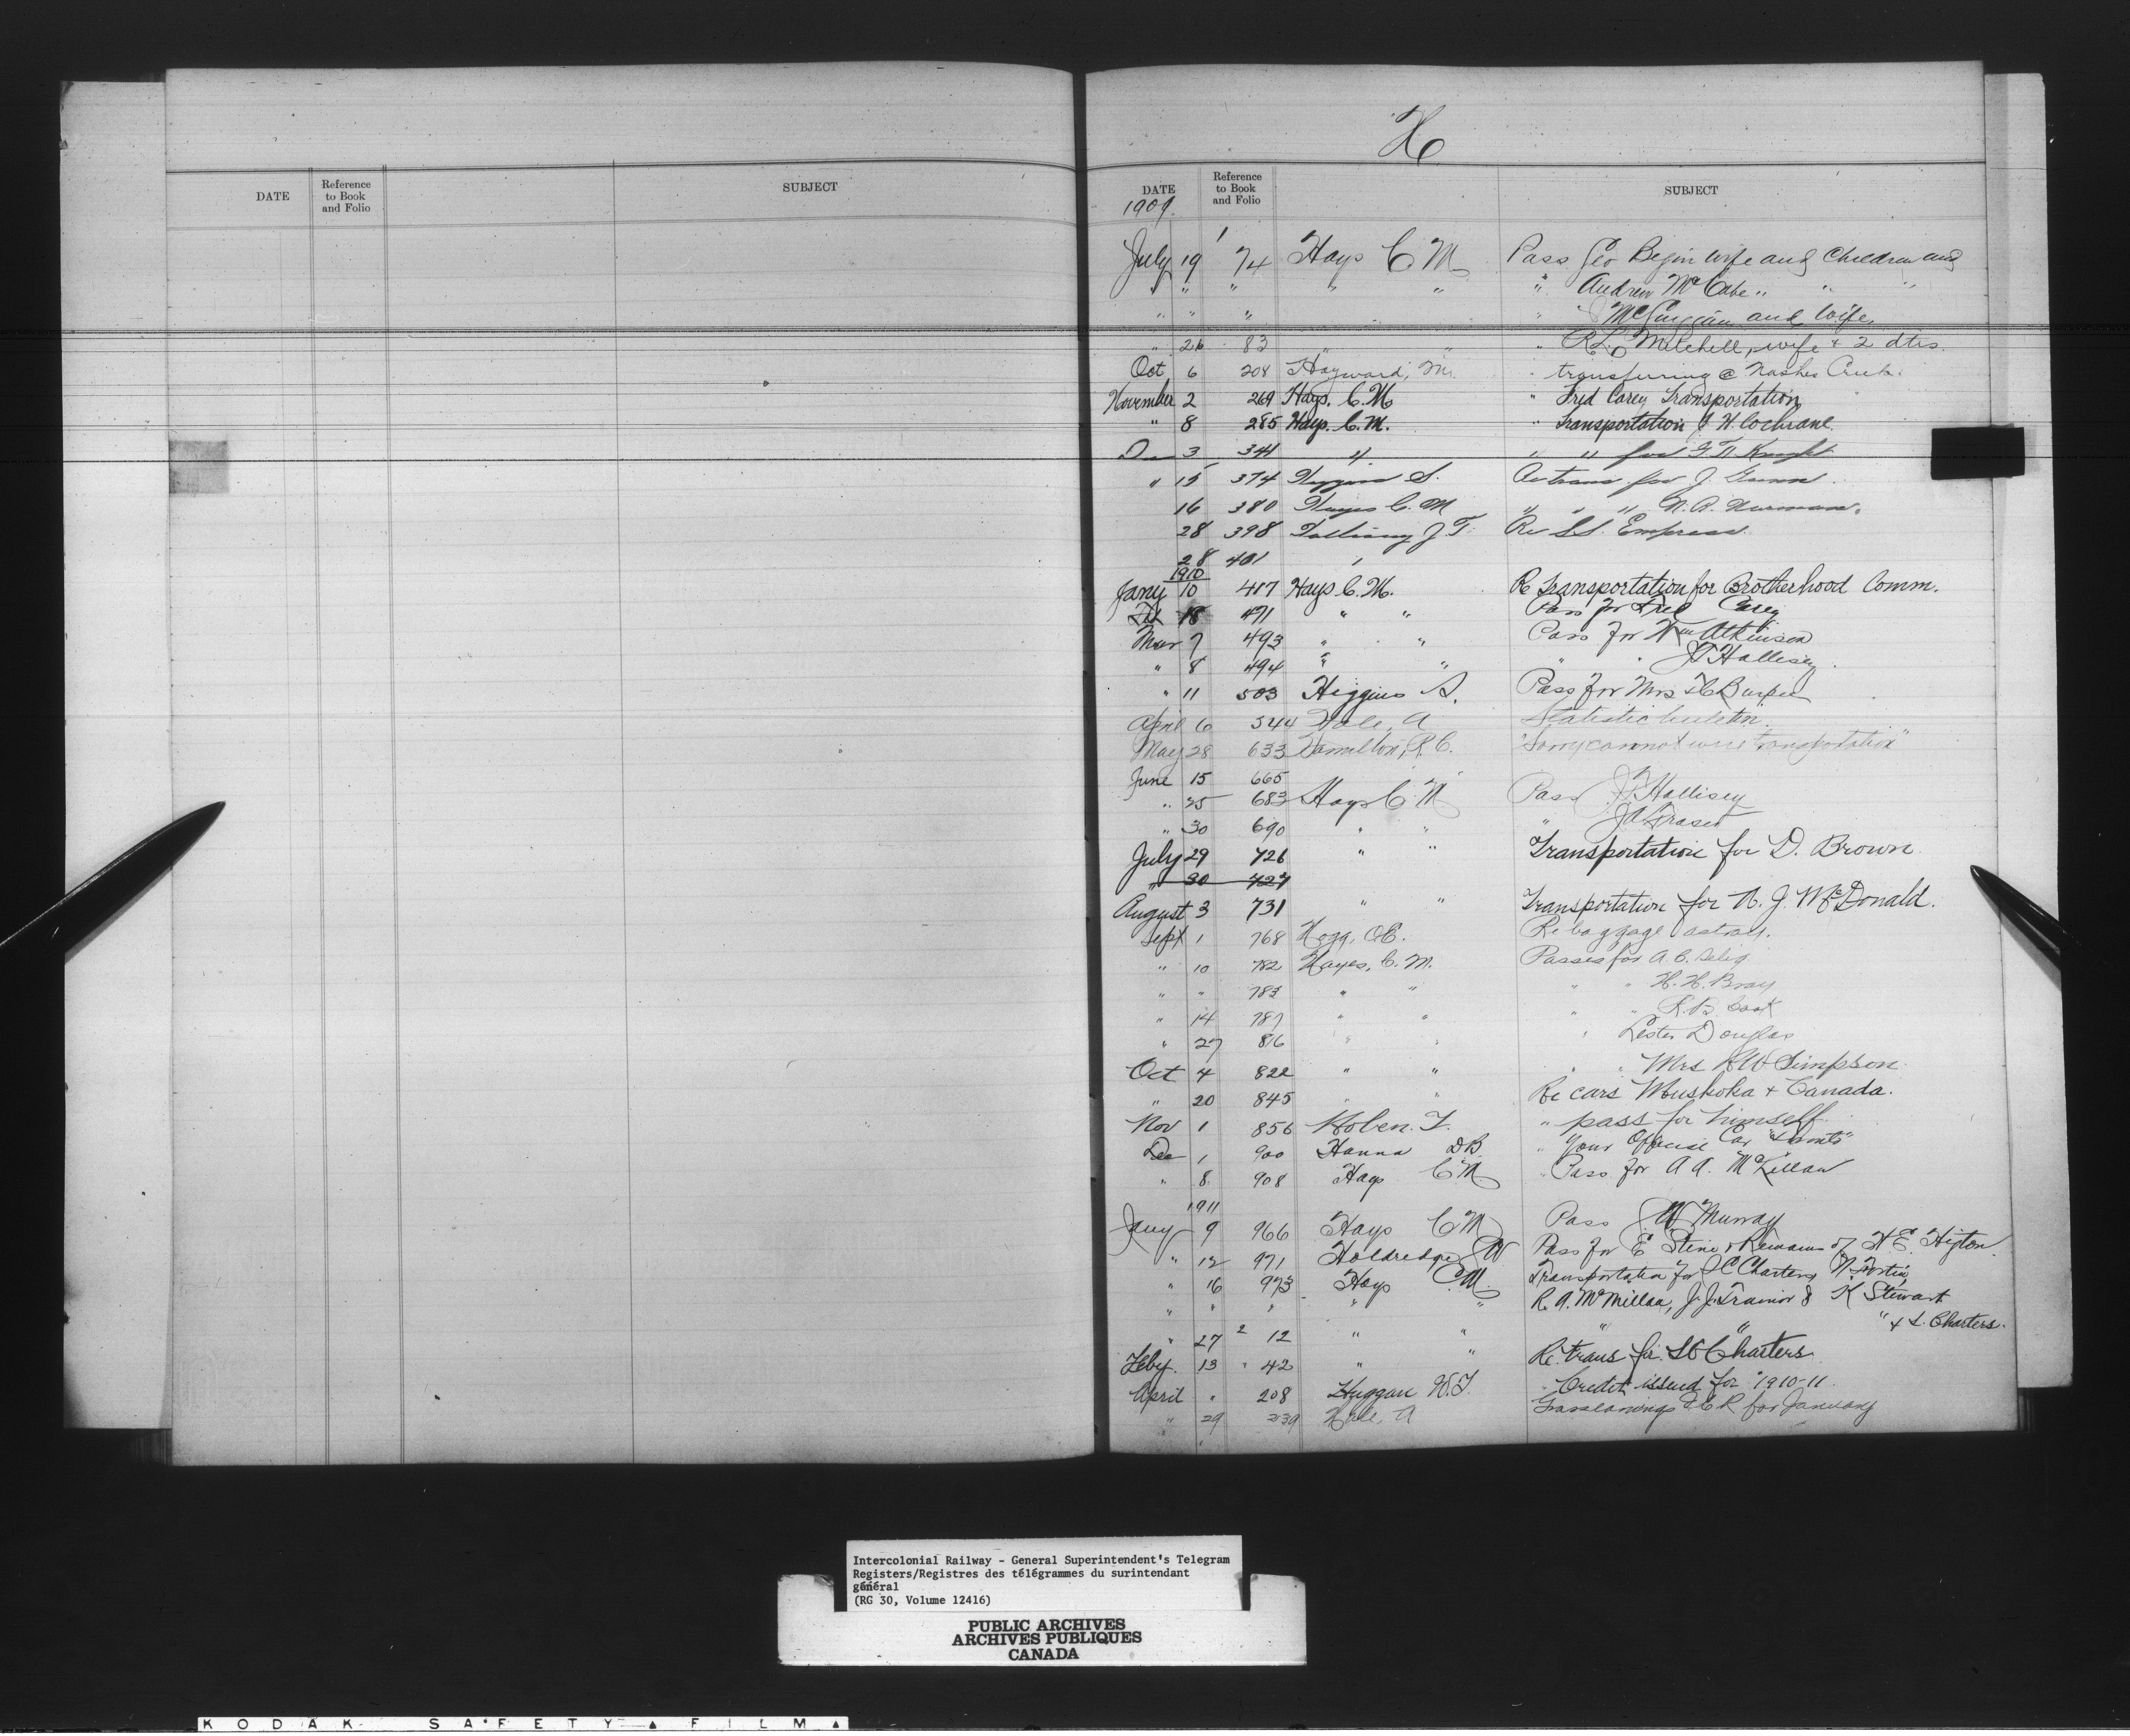 H
DATE Reference to Book and Folio SUBJECT
DATE Reference to Book and Folio SUBJECT
1909
July 19 1 74 Hays C M Pass Geo Begin wife and Children and
" " " " " " Andrew McCabe " " "
" " " " and wife
" 26 83 " " " R L Mitchell, wife & 2 dtrs.
Oct 6 208 Hayward, Mr. " transferring @ Nashes Creek.
November 2 269 Hays. C. M " Fred Carey Transportation
" 8 285 Hays. C. M. " Transportation J H. Cochrane.
Dec 3 341 " " " for Knight
" 15 374 Higgins S. for J. Gunn
16 380 Hayes C. M " " " N. A.
28 398 J. T. Re S.S. Empress.
28 401 "
1910
Jany 10 417 Hays C. M. Re Transportation for Brotherhood Comm.
18 471 " " Pass for Fred Carey
Mar 7 493 " " Pass for Wm Atkinson
" 8 494 " " " " Hallisey
" 11 503 Higgins S. Pass for Mrs Burpee
April 6 544 Hale, A Statistic bulletin.
May 28 633 Hamilton, R. C. "Sorry cannot wire transportation"
June 15 665
" 25 683 Hays C. M Pass Hallisey
" 30 690 " " " J A Fraser
July 29 726 " " Transportation for D. Brown
" 30 727
August 3 731 " " Transportation for N. J. McDonald.
Sept 1 768 Hogg, O.E. Re baggage astray.
" 10 782 Hayes, C. M. Passes for A. C.
" " 783 " " " " H. H. Bray
" 14 787 " " " " R. B.
" 27 816 " " " Lester Douglas
Oct 4 822 " " " " Mrs R W Simpson.
" 20 845 " " Re cars Muskoka & Canada.
Nov 1 856 Hoben. T. " pass for himself.
Dec 1 900 Hanna DB " Your Official Car
" 8 908 Hays C M. " Pass for A A. McKillan
1911
Jany 9 966 Hays C M Pass J W Murray
" 12 971 Holdredge W Pass for E Stine & Remains of H E. Higton
" 16 973 Hays C M. Transportation for J C Charters,
" " " " " R. A. McMillan, J. J. Trainor & K Stewart
" 27 2 12 " " " " " & S. Charters.
Feby. 13 " 42 " " Re. trans for. S C Charters
April " 208 Huggan W. T. " Credit issued for 1910-11.
" 29 239 Hale, A I.C.R for January
Intercolonial Railway - General Superintendent's Telegram
Registers/Registres des télégrammes du surintendant
général
(RG 30, Volume 12416)
PUBLIC ARCHIVES
ARCHIVES PUBLIQUES
CANADA
KODAK SAFETY FILM